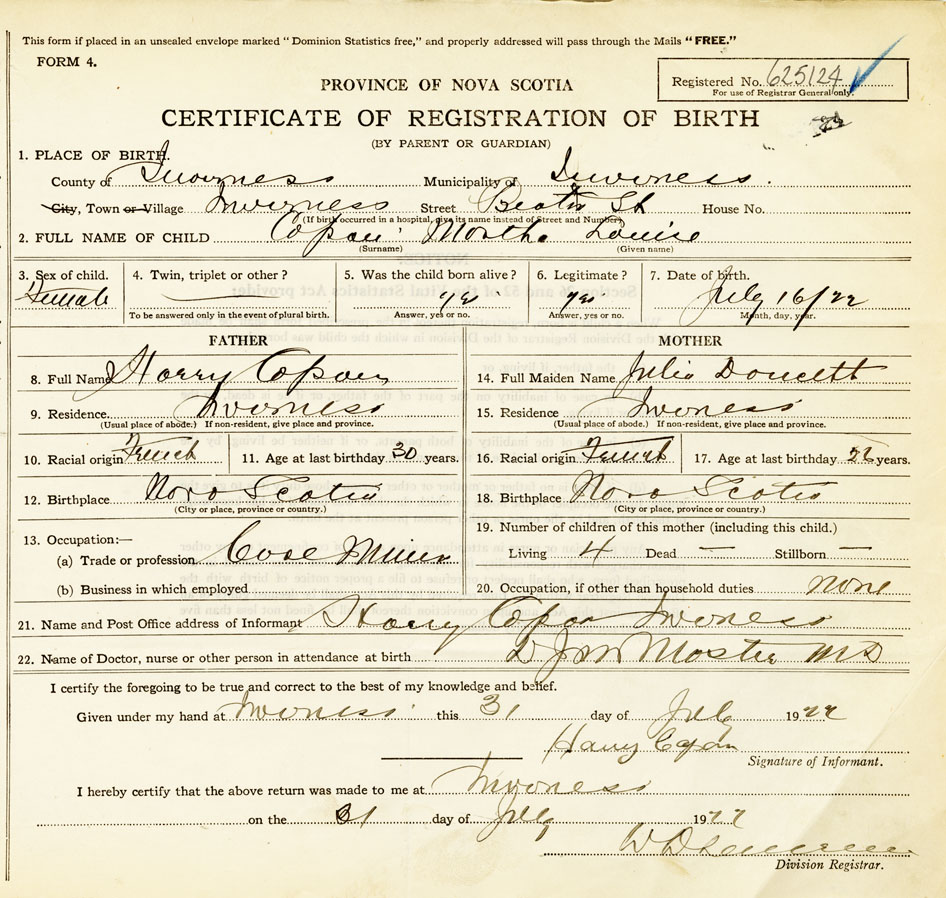 This form if placed in an unsealed envelope marked "Dominion Statistics free," and properly addressed will pass through the Mails "FREE."
FORM 4.
Registered No. 625124
For use of Registrar General only.
PROVINCE OF NOVA SCOTIA
CERTIFICATE OF REGISTRATION OF BIRTH
(BY PARENT OR GUARDIAN)
1. PLACE OF BIRTH.
County of Inverness Municipality of Inverness.
City, Town or Village Inverness Street St House No.
(If birth occurred in a hospital, give its name instead of Street and Number)
2. FULL NAME OF CHILD Martha Louise
(Surname) (Given name)
3. Sex of child. 4. Twin, triplet or other? 5. Was the child born alive? 6. Legitimate? 7. Date of birth.
Female — yes yes July 16/22
To be answered only in the event of plural birth. Answer, yes or no. Answer, yes or no. Month, day, year.
FATHER MOTHER
8. Full Name Harry 14. Full Maiden Name Julia Doucett
9. Residence Inverness 15. Residence Inverness
(Usual place of abode.) If non-resident, give place and province. (Usual place of abode.) If non-resident, give place and province.
10. Racial origin French 11. Age at last birthday 30 years. 16. Racial origin French 17. Age at last birthday years.
12. Birthplace Nova Scotia 18. Birthplace Nova Scotia
(City or place, province or country.) (City or place, province or country.)
13. Occupation:— 19. Number of children of this mother (including this child.)
(a) Trade or profession Coal Miner Living 4 Dead — Stillborn —
(b) Business in which employed 20. Occupation, if other than household duties none
21. Name and Post Office address of Informant Harry Inverness
22. Name of Doctor, nurse or other person in attendance at birth MD
I certify the foregoing to be true and correct to the best of my knowledge and belief.
Given under my hand at Inverness this 31 day of July 1922
Harry
Signature of Informant.
I hereby certify that the above return was made to me at Inverness
on the 31 day of July 1922
Division Registrar.